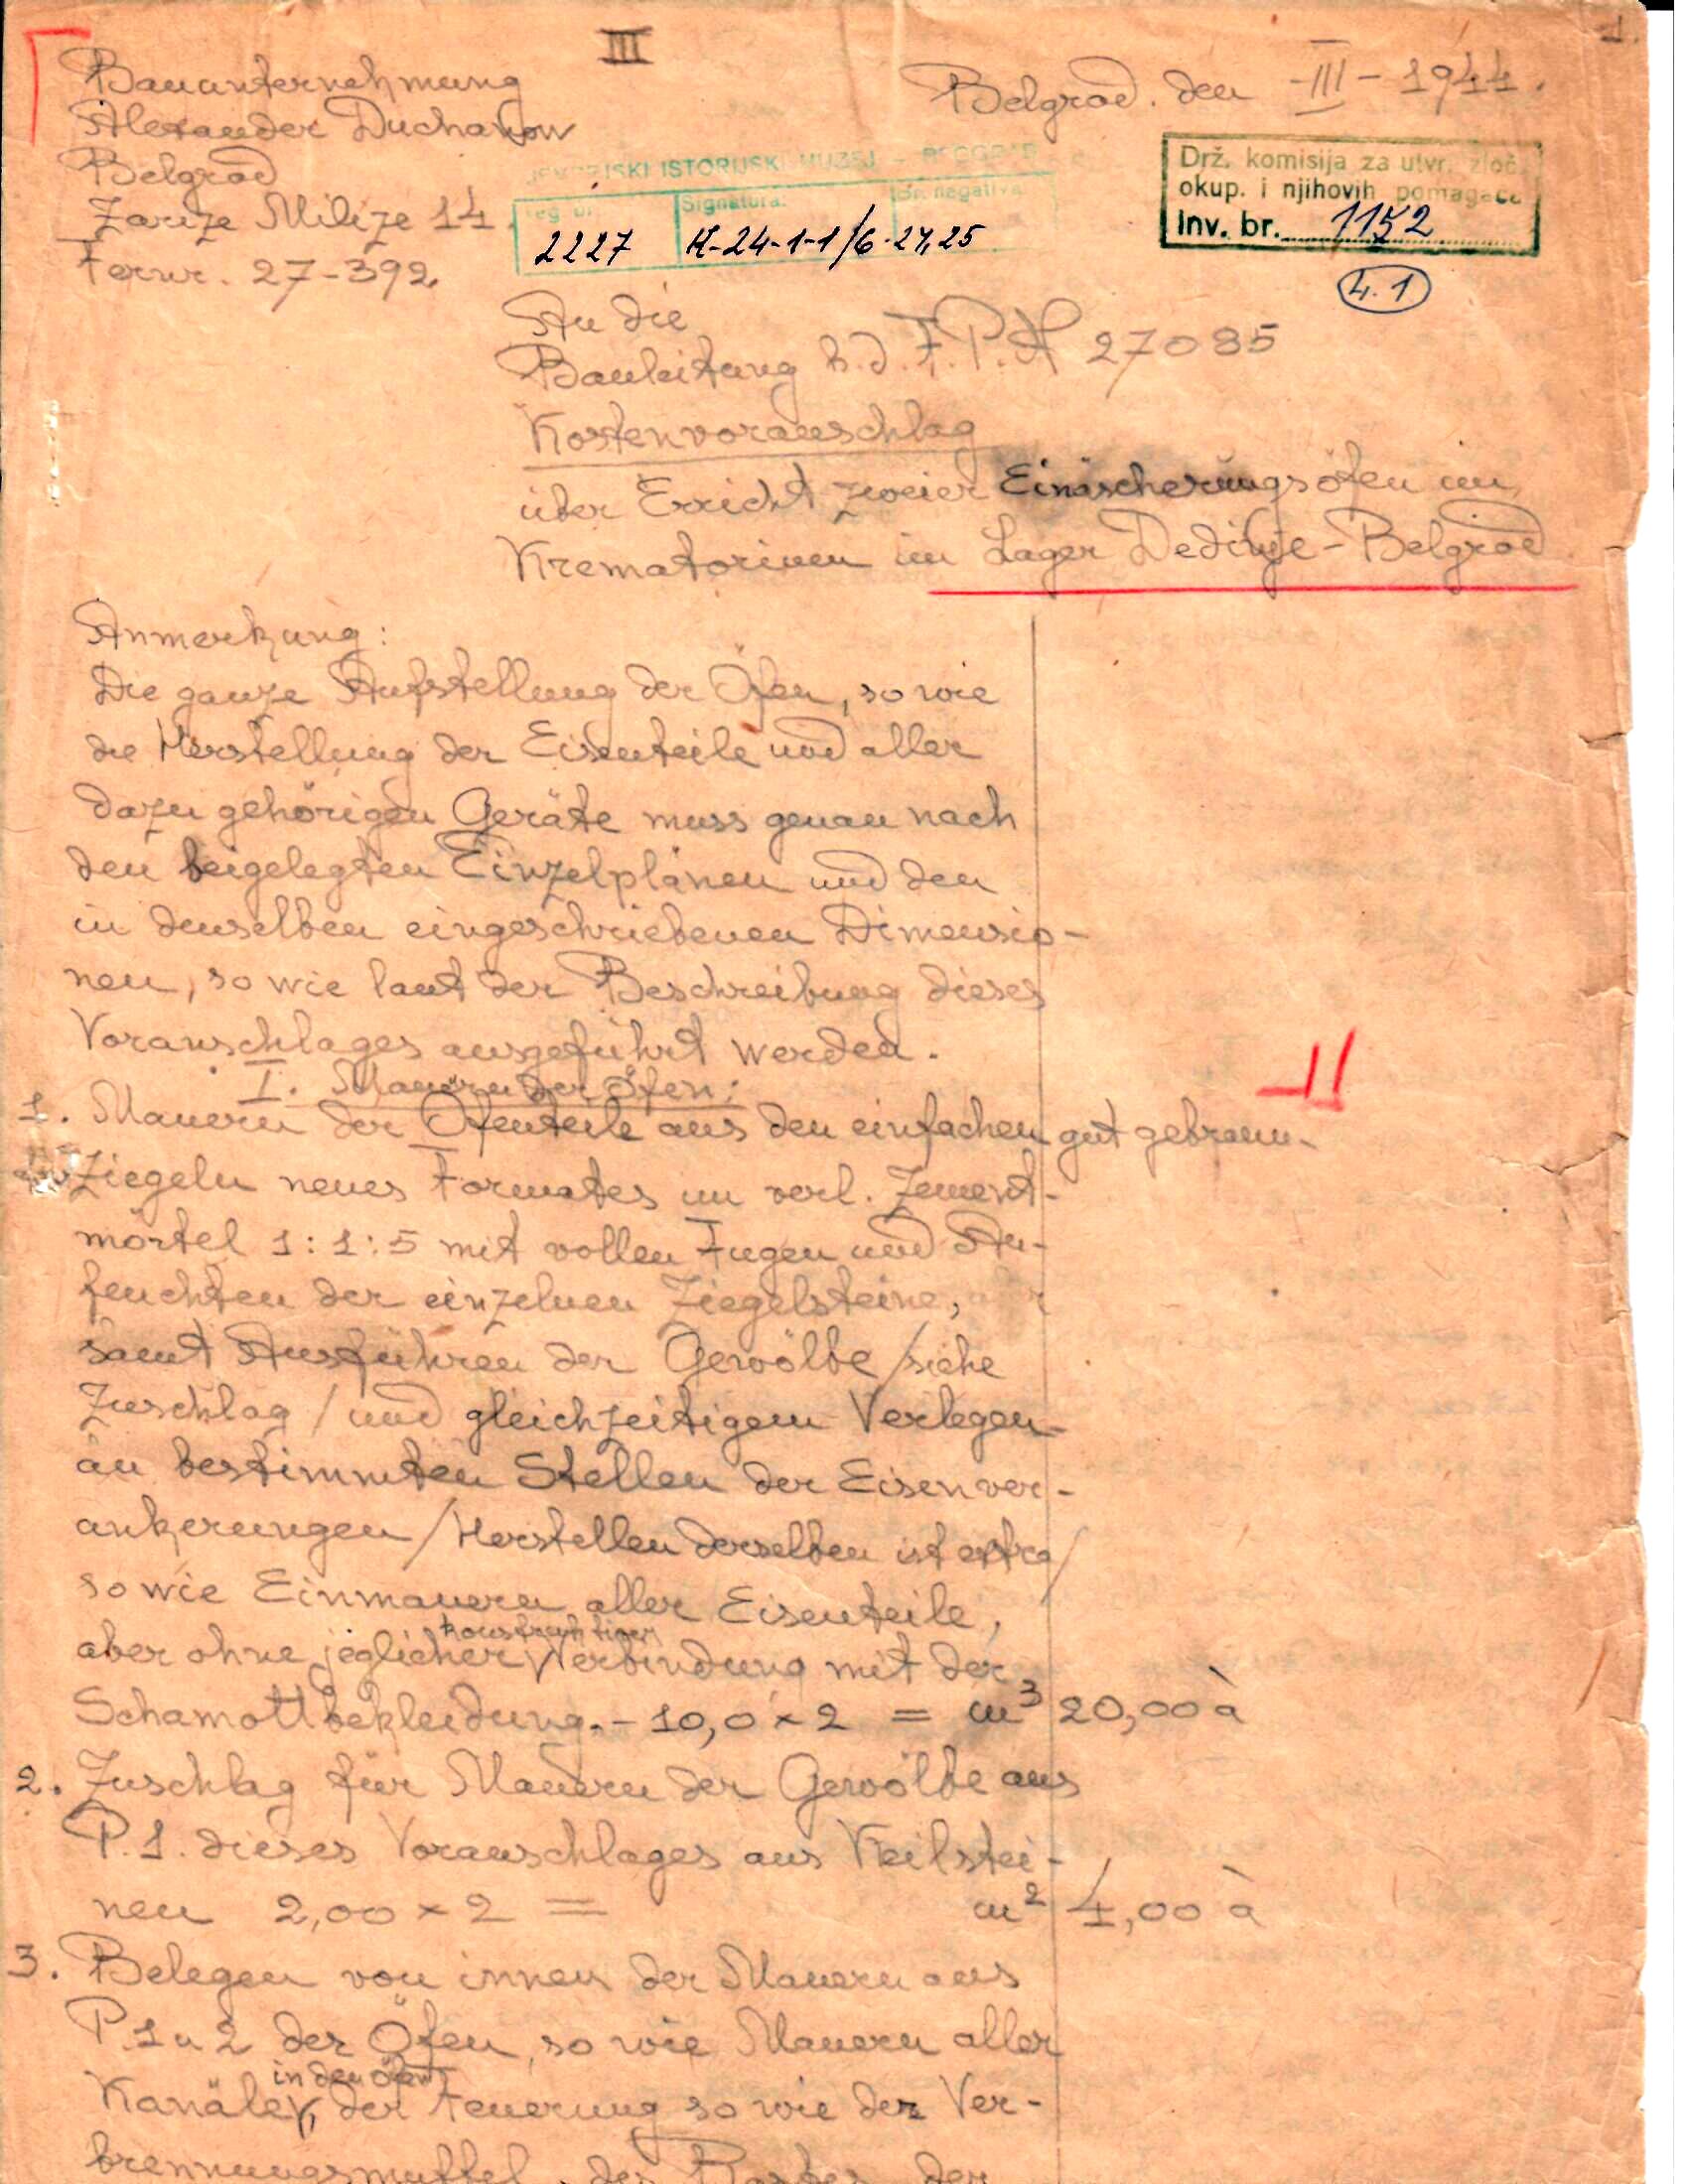 III
1.
Bauunternehmung
Alexander Duchanow
Belgrad
Zarize Milize 14
Fernr. 27-392.
Belgrad. den -III-1944.
JEVREJSKI ISTORIJSKI MUZEJ - BEOGRAD
Reg. br. Signatura: Br. negativa
2227 K-24-1-1/6-24,25
Drž. komisija za utvr. zloč.
okup. i njihovih pomagača
Inv. br. 1152
4.1
An die
Bauleitung b.d. F.P.N 27085
Kostenvorauschlag
über Erricht zweier Einäscherungsöfen im
Krematorium im Lager Dedinje-Belgrad
Anmerkung:
Die ganze Aufstellung der Öfen, so wie
die Herstellung der Eisenteile und aller
dazu gehörigen Geräte muss genau nach
den beigelegten Einzelplänen und den
in denselben eingeschriebenen Dimensio-
nen, so wie laut der Beschreibung dieses
Vorauschlages ausgeführt werden.
I. Mauern der Öfen:
1. Mauern der Ofenteile aus den einfachen gut gebrann-
Ziegeln neues Formates in verl. Zement-
mörtel 1:1:5 mit vollen Fugen und An-
feuchten der einzelnen Ziegelsteine,
samt Ausführen der Gewölbe /siehe
Zuschlag / und gleichzeitigem Verlegen
an bestimmten Stellen der Eisenver-
ankerungen /Herstellen derselben ist extra/
so wie Einmauern aller Eisenteile,
konstruktiver
aber ohne jeglicher Verbindung mit der
Schamottbekleidung.- 10,0 × 2 = m³ 20,00 à
2. Zuschlag für Mauern der Gewölbe aus
P.1. dieses Vorauschlages aus Keilstei-
nen 2,00 × 2 = m² 4,00 à
3. Belegen von innen der Mauern aus
P.1 u 2 der Öfen, so wie Mauern aller
in den Öfen
Kanäle, der Feuerung so wie der Ver-
brennungsmuffel, des Rostes, der